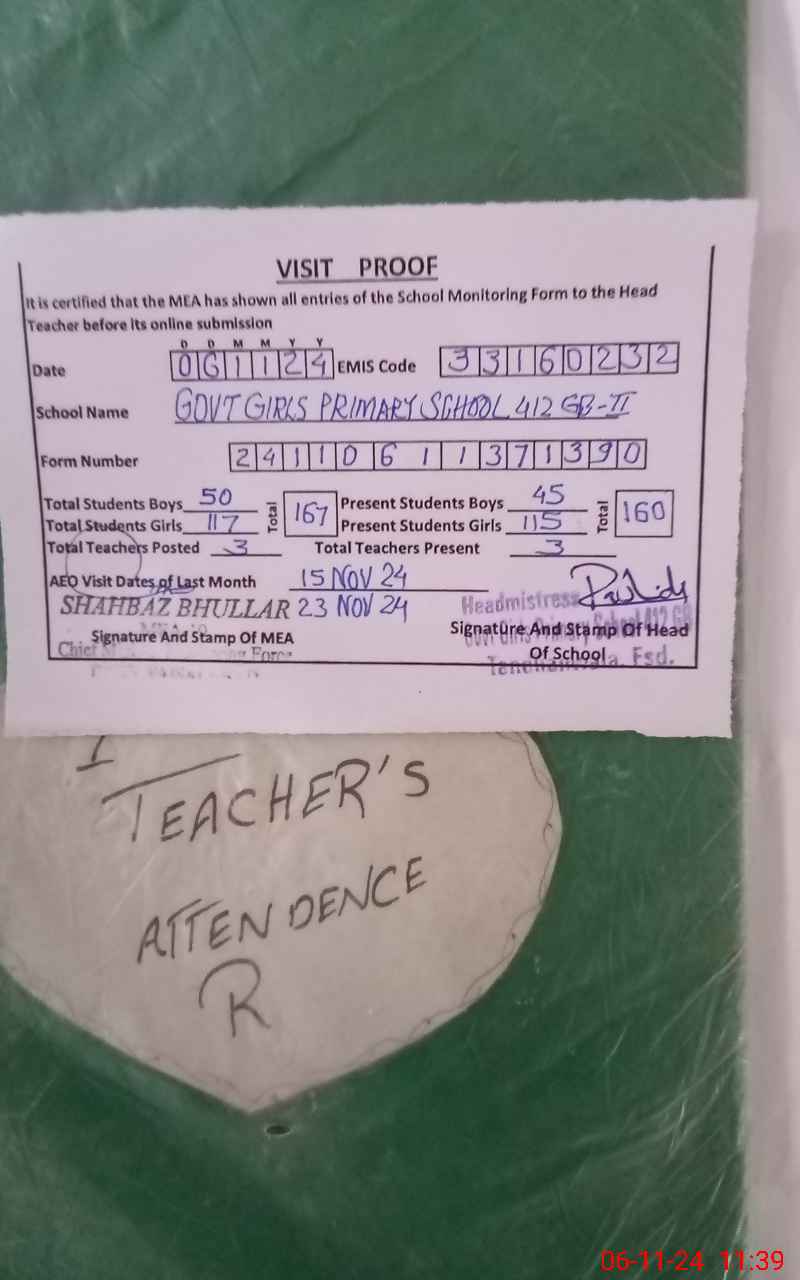 VISIT PROOF
It is certified that the MEA has shown all entries of the School Monitoring Form to the Head
Teacher before its online submission
D D M M Y Y
Date 061124 EMIS Code 33160232
School Name GOVT GIRLS PRIMARY SCHOOL 412 GB-II
Form Number 241106 1 1371390
Total Students Boys 50 Total 167 Present Students Boys 45 Total 160
Total Students Girls 117 Present Students Girls 115
Total Teachers Posted 3 Total Teachers Present 3
AEO Visit Dates of Last Month 15 NOV 24
SHAHBAZ BHULLAR 23 NOV 24 Headmistress
Signature And Stamp Of MEA Signature And Stamp Of Head
Chief Force Of School Fsd.
I
TEACHER'S
ATTENDENCE
R
06-11-24 11:39